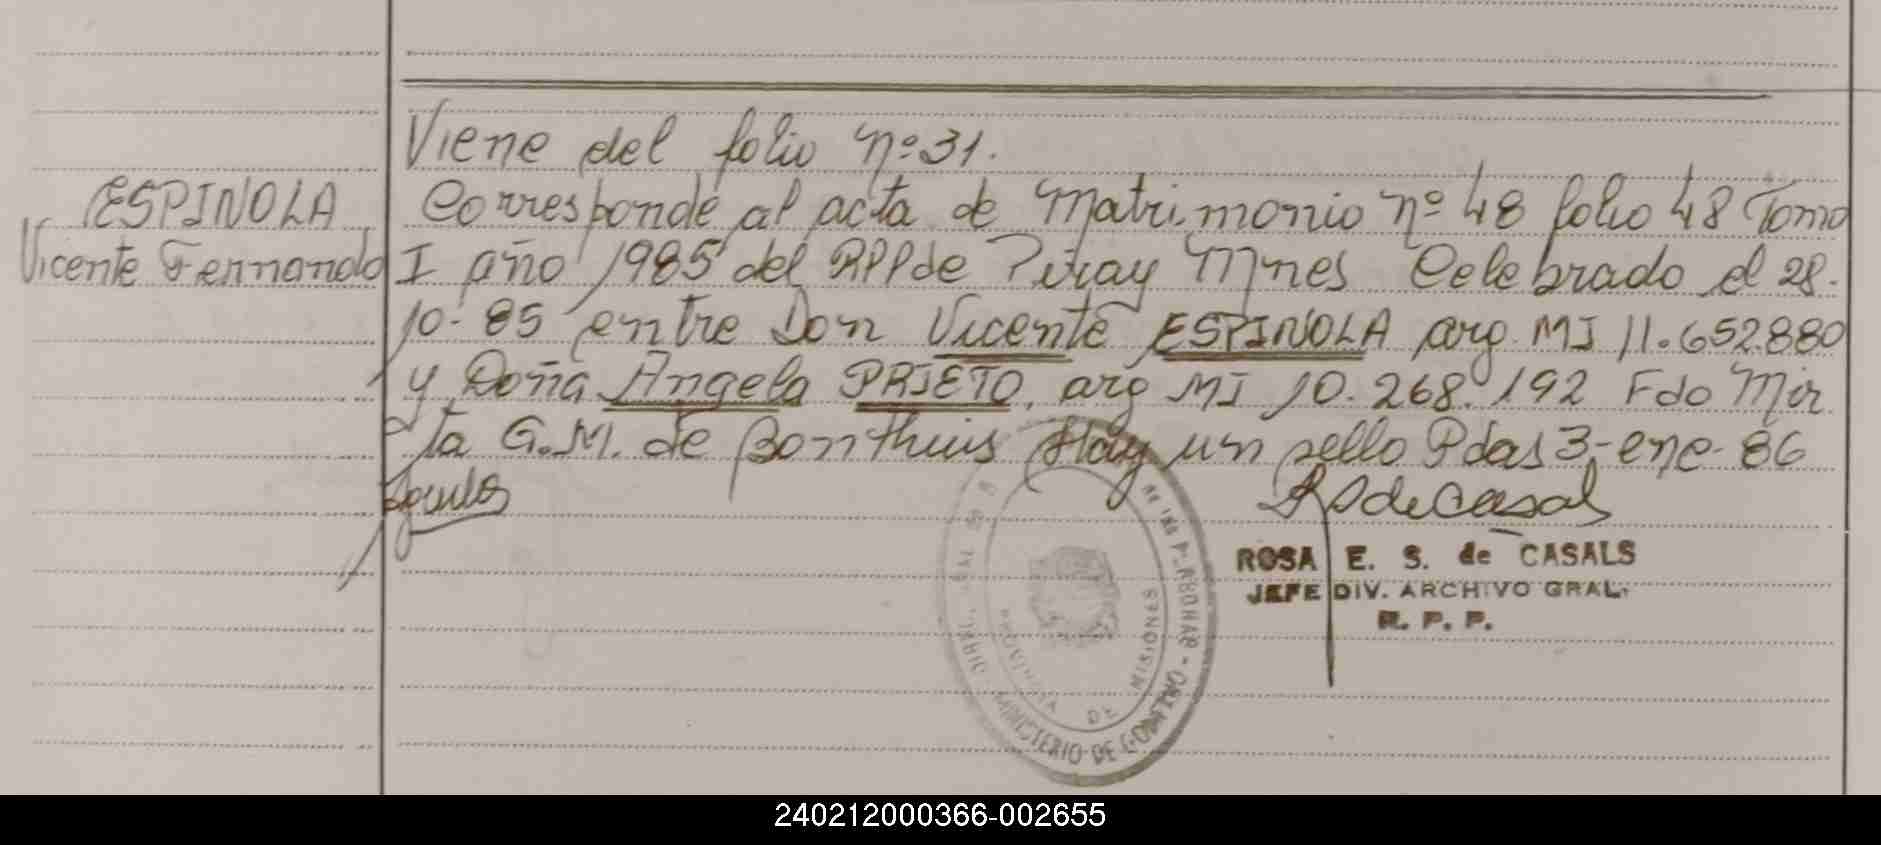 Viene del folio nº 31.
ESPINOLA
Vicente Fernando
Corresponde al acta de Matrimonio nº 48 folio 48 Tomo
I año 1985 del RPP de Piray Mnes Celebrado el 28-
10-85 entre Don Vicente ESPINOLA arg. MI 11.652.880
y Doña Angela PRIETO, arg MI 10.268.192 Fdo Mir
ta G.M. de Bonthuis Hay un sello Pdas 3-ene-86
ROSA E. S. de CASALS
JEFE DIV. ARCHIVO GRAL.
R. P. P.
MINISTERIO DE GOBIERNO
PROVINCIA DE MISIONES
240212000366-002655